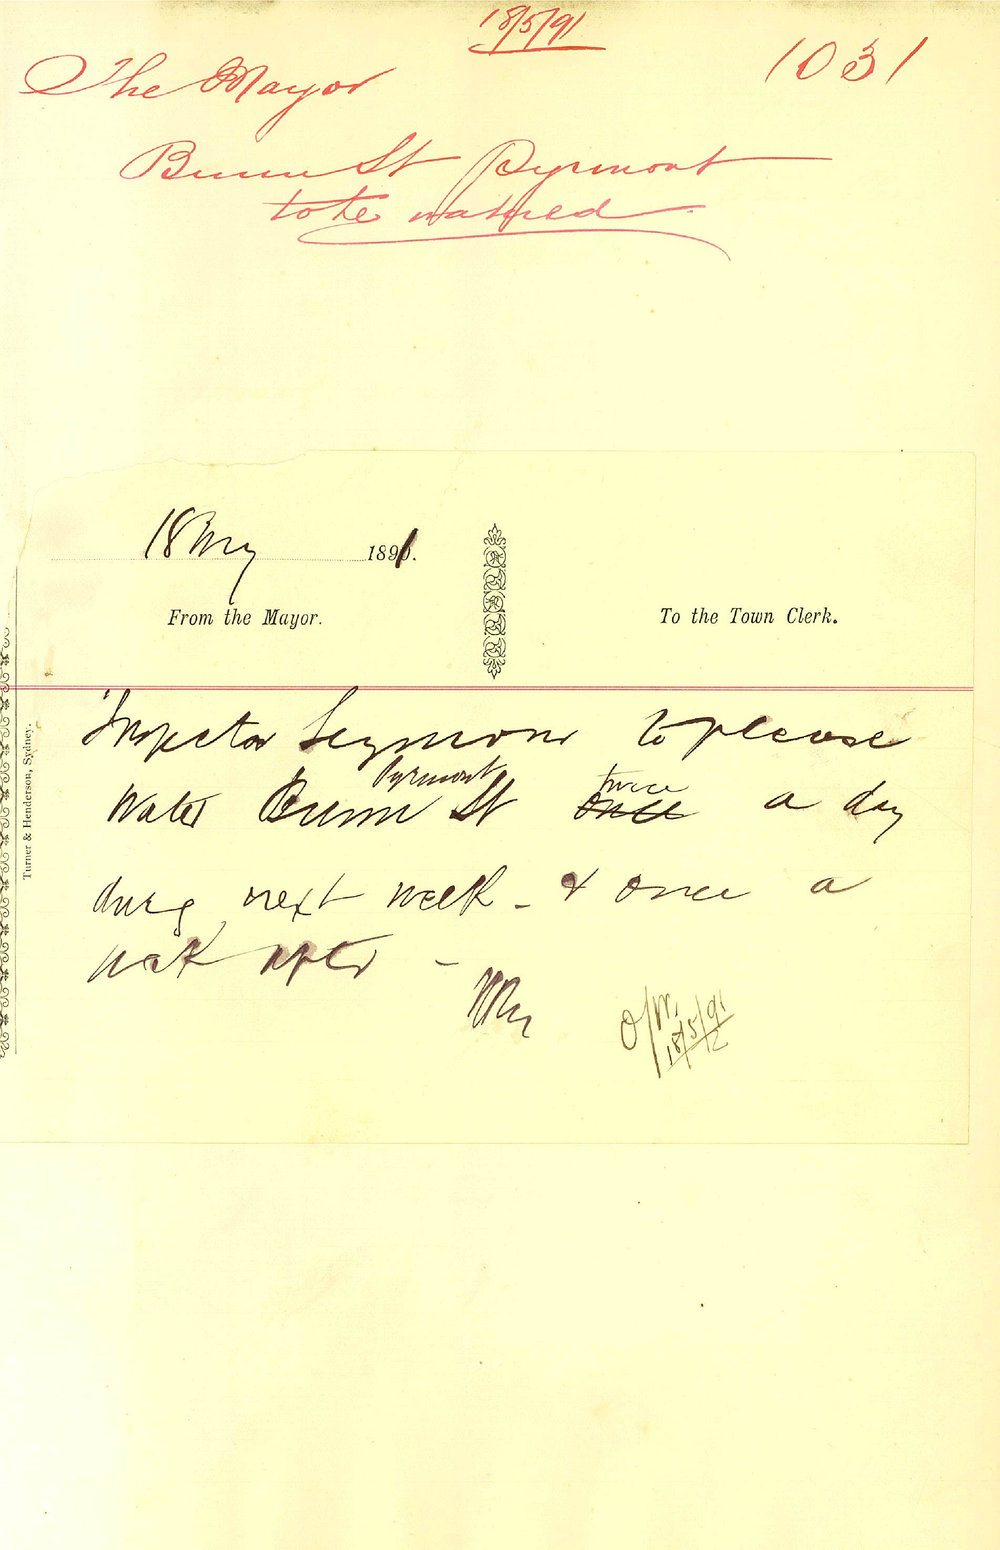 18/5/91
1031
The Mayor
Bunn St Pyrmont
to be watered
18 My 1891.
From the Mayor.
To the Town Clerk.
Turner & Henderson, Sydney.
Inspector Seymour to please
Water Bunn St Pyrmont once twice a day
durg next week - & once a
week after -
18/5/91